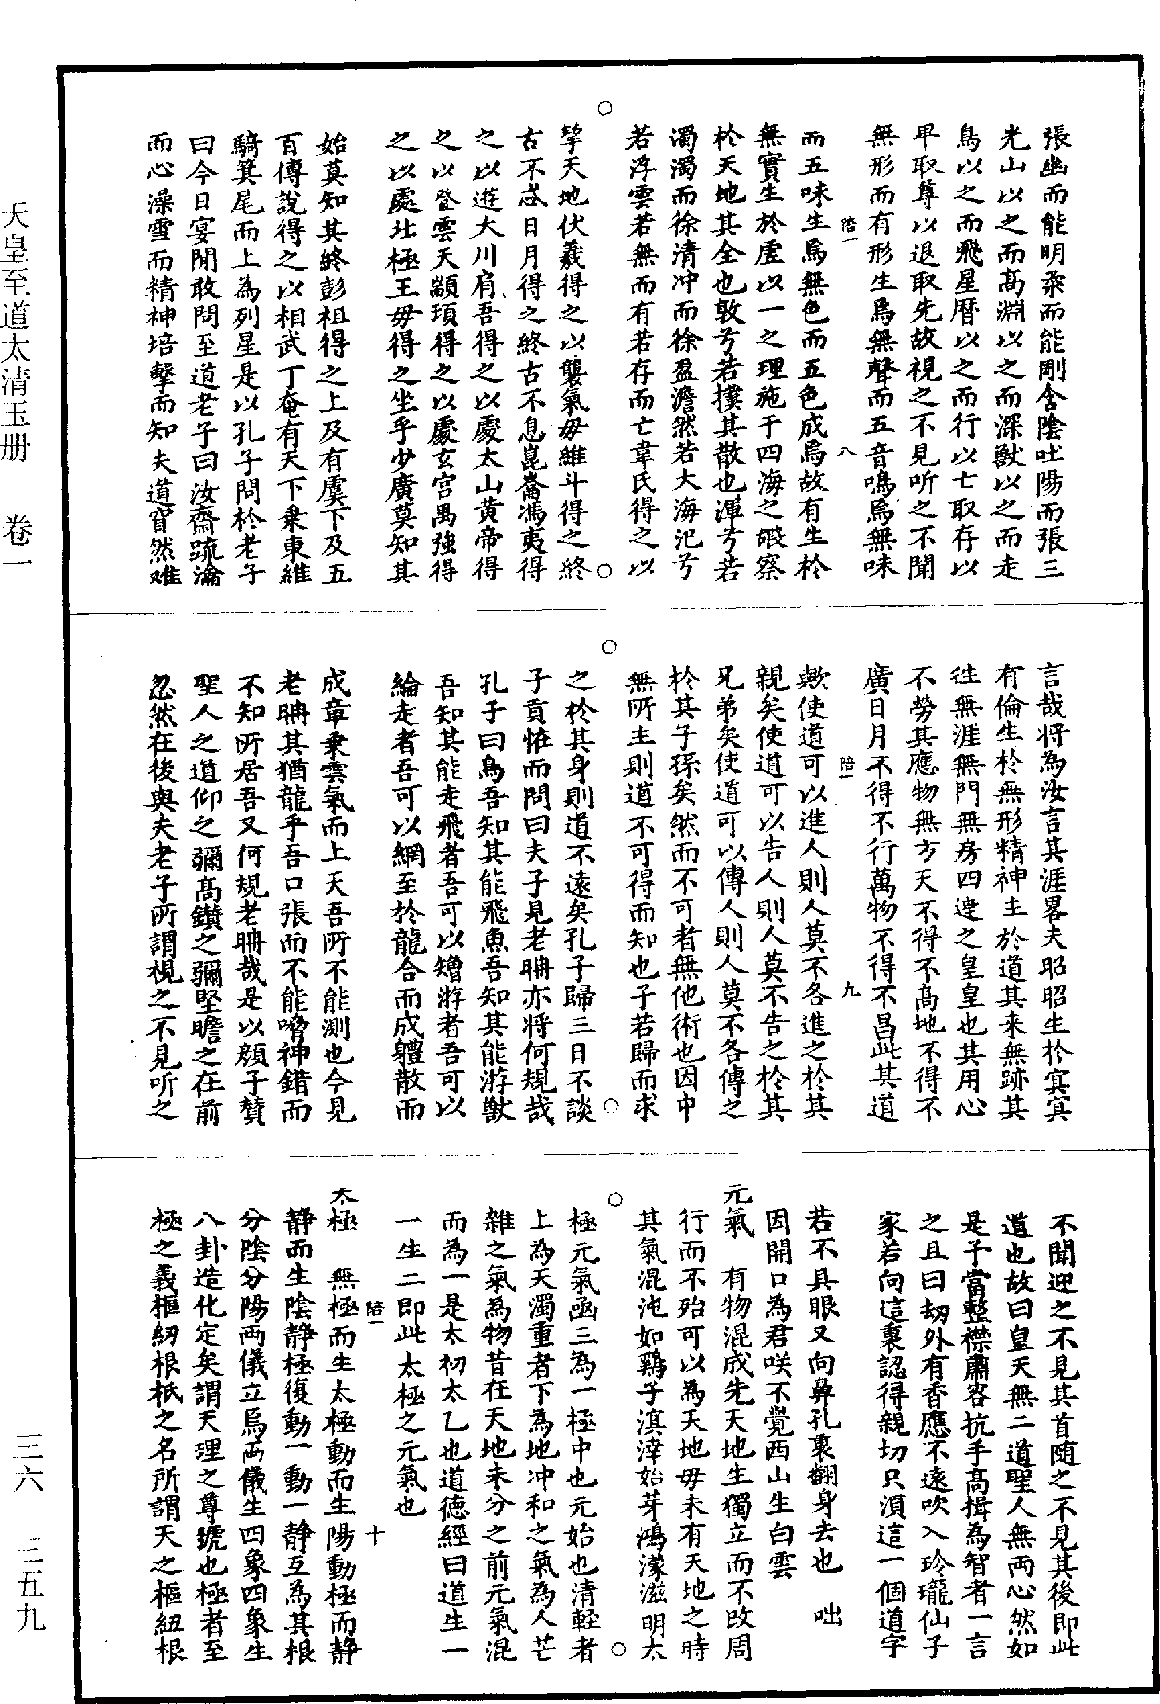 天皇至道太清玉册　卷一
三六　三五九
張幽而能明柔而能剛含陰吐陽而張三
光山以之而高淵以之而深獸以之而走
鳥以之而飛星曆以之而行以七取存以
早取尊以退取先故視之不見听之不聞
無形而有形生焉無聲而五音鳴焉無味
而五味生焉無色而五色成焉故有生於
陪一　八
無實生於虛以一之理施于四海之嘏察
於天地其全也敦兮若撲其散也渾兮若
濁濁而徐清冲而徐盈澹然若大海汜兮
若浮雲若無而有若存而亡韋氏得之以
挈天地伏羲得之以襲氣毋維斗得之終
古不忒日月得之終古不息崑崙馮夷得
之以遊大川肩吾得之以處太山黄帝得
之以登雲天顓頊得之以處玄宫禺強得
之以處北極王毋得之坐乎少廣莫知其
始莫知其終彭祖得之上及有虞下及五
百傳說得之以相武丁奄有天下乗東維
騎箕尾而上為列星是以孔子問於老子
曰今日宴閒敢問至道老子曰汝齋疏瀹
而心澡雪而精神培擊而知夫道窅然难
言哉将為汝言其涯畧夫昭昭生於㝠㝠
有倫生於無形精神生於道其来無跡其
徃無涯無門無房四達之皇皇也其用心
不勞其應物無方天不得不髙地不得不
廣日月不得不行萬物不得不昌此其道
陪一　九
歟使道可以進人則人莫不各進之於其
親矣使道可以告人則人莫不告之於其
兄弟矣使道可以傳人則人莫不各傳之
於其子孫矣然而不可者無他術也因中
無所主則道不可得而知也子若歸而求
之於其身則道不遠矣孔子歸三日不談
子貢恠而問曰夫子見老聃亦將何規哉
孔子曰鳥吾知其能飛魚吾知其能游獸
吾知其能走飛者吾可以矰游者吾可以
綸走者吾可以網至於龍合而成體散而
成章乗雲氣而上天吾所不能測也今見
老聃其猶龍乎吾口張而不能噏神錯而
不知所居吾又何規老聃哉是以顔子賛
聖人之道仰之彌髙鑚之彌堅瞻之在前
忽然在後與夫老子所謂視之不見听之
不聞迎之不見其首随之不見其後即此
道也故曰皇天無二道聖人無两心然如
是子當整襟肅容抗手高揖為智者一言
之且曰刼外有香應不遠吹入玲瓏仙子
家若向這裏認得親切只湏這一個道字
若不具眼又向鼻孔裏翻身去也　咄
因開口為君咲不覺西山生白雲
元氣　有物混成先天地生獨立而不改周
行而不殆可以為天地毋未有天地之時
其氣混沌如鷄子溟涬始芽鴻濛滋明太
極元氣函三為一極中也元始也清輕者
上為天濁重者下為地冲和之氣為人芒
雜之氣為物昔在天地未分之前元氣混
而為一是太初太乙也道德經曰道生一
一生二即此太極之元氣也
陪一　十
太極　無極而生太極動而生陽動極而静
静而生陰静極復動一動一静互為其根
分陰分陽两儀立焉两儀生四象四象生
八卦造化定矣謂天理之尊號也極者至
極之義樞紐根柢之名所謂天之樞紐根